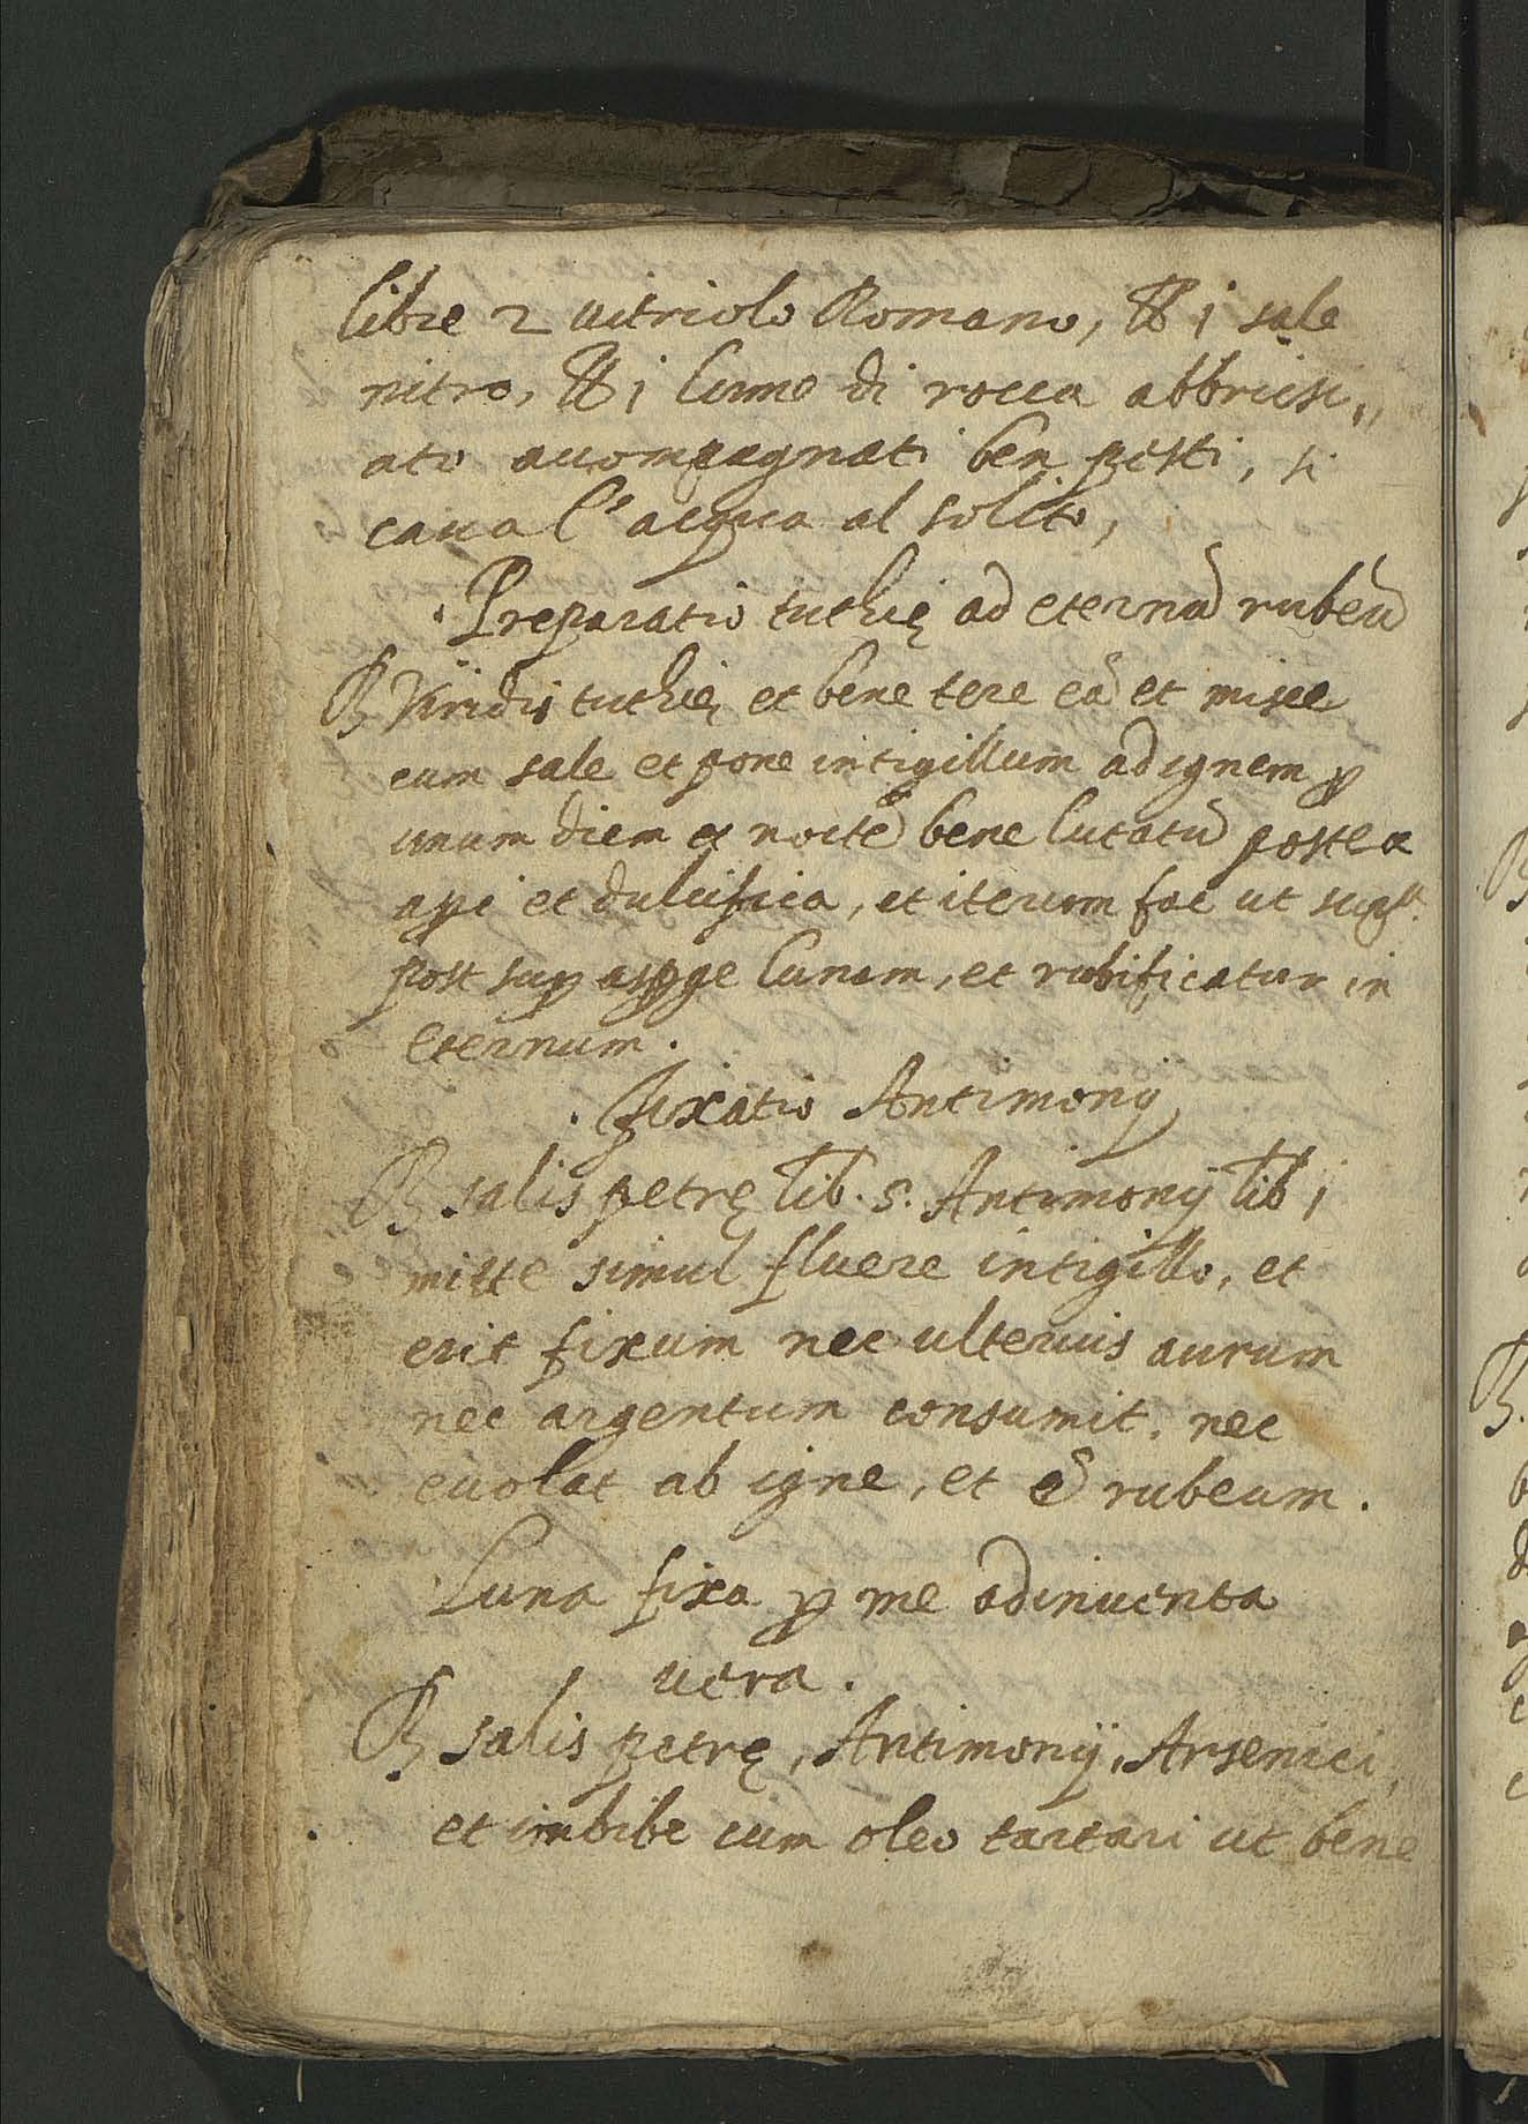 libre 2 uitriolo Romano, ℔ i sale
nitro, ℔ i lume di rocca abbrusi„
ato accompagnati ben pisti, si
caua l'acqua al solito,
. Preparatio tuthię ad eternũ rubeũ
℞ Viridis tuthię et bene tere eã et misce
cum sale et pone intigillum ad ignem ꝑ
unum diem et noctẽ bene lutatũ postea
aꝑi et dulcifica, et iterum fac ut supᵃ.
post suꝑ asꝑge lunam, et rubificatur in
eternum.
. fixatio Antimonij
℞ salis petrę lib. s. Antimonij lib i
mitte simul fluere intigillo, et
erit fixum nec ulterius aurum
nec argentum consumit. nec
euolat ab igne, et ẽ rubeum.
Luna fixa ꝑ me adinuenta
uera.
℞ salis petrę, Antimonij, Arsenici,
et imbibe cum oleo tartari ut bene